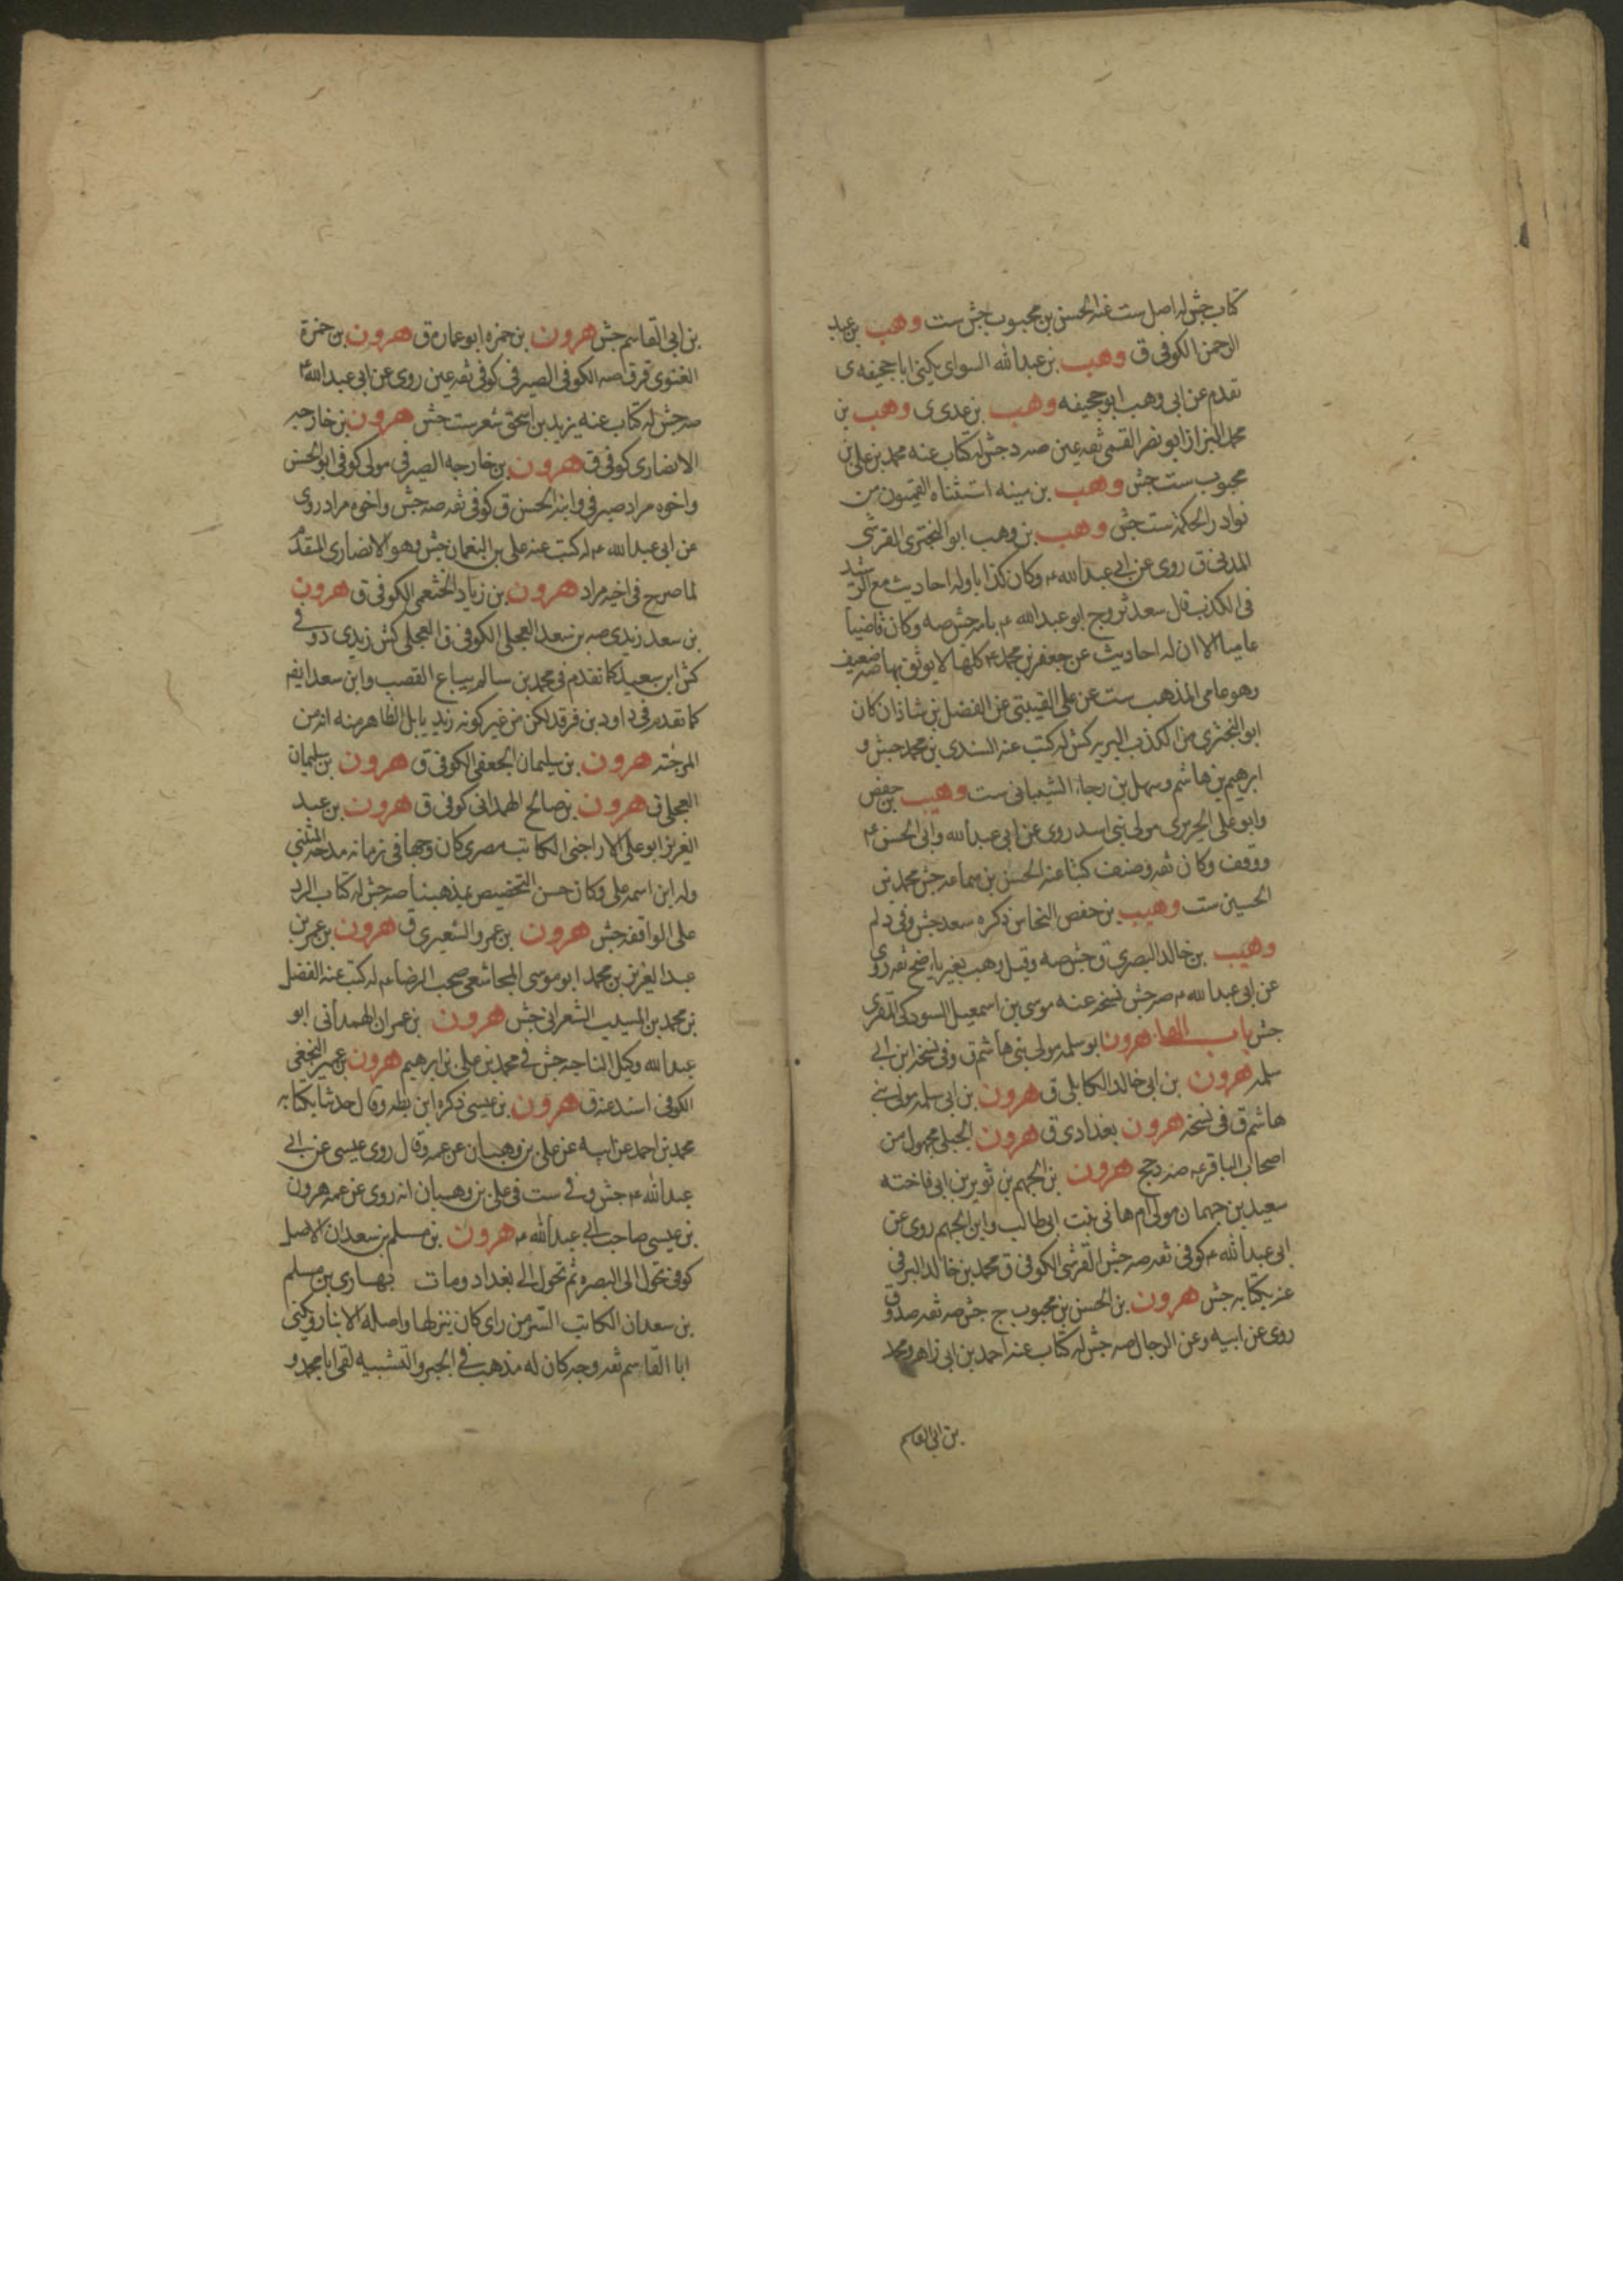 كتاب جش له اصل ست عنه الحسن بن محبوب جش ست وهب بن عبد
الرحمن الكوفى ق وهب بن عبدالله السواى يكنى ابا جحيفه ى
تقدم عن ابى وهب ابو جحيفه وهب بن عدى ى وهب بن
محمد البزاز ابو نصر القمى ثقه عين صه د جش له كتاب عنه محمد بن على بن
محبوب ست جش وهب بن منبه استثناه القميون من
نوادر الحكمة ست جش وهب بن وهب ابو البخترى القرشى
المدنى ق روى عن ابى عبدالله ع وكان كذابا وله احاديث مع الرشيد
فى الكذب قال سعد تزوج ابو عبدالله ع بامه جش صه وكان قاضيا
عاميا الا ان له احاديث عن جعفر بن محمد ع كلها لا يوثق بها صه ضعيف
وهو عامى المذهب ست عن على القتيبى عن الفضل بن شاذان كان
ابو البخترى من اكذب البريه كش له كتب عنه السندى بن محمد جش و
ابرهيم بن هاشم وسهل بن رجاء الشيبانى ست وهيب بن حفص
وابو على الحريرى مولى بنى اسد روى عن ابى عبدالله وابى الحسن ع
ووقف وكان ثقه وصنف كتبا عنه الحسن بن سماعه جش محمد بن
الحسين ست وهيب بن حفص النحاس ذكره سعد جش وفى د لم
وهيب بن خالد البصرى ق جش صه وقيل وهب بغير ياء ضح ثقه روى
عن ابى عبدالله ع صه جش نسخه عنه موسى بن اسمعيل السودكى المقرى
جش باب الهاء هرون ابو سلمه مولى بنى هاشم ق وفى نسخة ابن ابى
سلمه هرون بن ابى خالد الكابلى ق هرون بن ابى سلمه مولى بنى
هاشم ق فى نسخه هرون بغدادى ق هرون الجبلى مجهول من
اصحاب الباقر ع صه د جج هرون بن الجهم بن ثوير بن ابى فاخته
سعيد بن جهمان مولى ام هانى بنت ابى طالب وابن الجهم روى عن
ابى عبدالله ع كوفى ثقه صه جش القرشى الكوفى ق محمد بن خالد البرقى
عنه بكتابه جش هرون بن الحسن بن محبوب ج جش صه ثقه صدوق
روى عن ابيه وعن الرجال صه جش له كتاب عنه احمد بن ابى زاهر ومحمد
بن ابى القاسم
بن ابى القاسم جش هرون بن حمزه ابو عماره ق هرون بن حمزة
الغنوى قر ق صه الكوفى الصيرفى كوفى ثقه عين روى عن ابى عبدالله ع
صه جش له كتاب عنه يزيد بن اسحق شعر ست جش هرون بن خارجه
الانصارى كوفى ق هرون بن خارجه الصيرفى مولى كوفى ابو الحسن
واخوه مراد صيرفى وابنه الحسن ق كوفى ثقه صه جش واخوه مراد روى
عن ابى عبدالله ع له كتب عنه على بن النعمان جش وهو الانصارى المتقدم
لما صرح فى اخيه مراد هرون بن زياد الخثعمى الكوفى ق هرون
بن سعد زيدى صه بن سعد العجلى الكوفى ق العجلى كش زيدى د وفى
كش ابن سعيد كما تقدم فى محمد بن سالم بياع القصب وابن سعد ايضا
كما تقدم فى داود بن فرقد لكن من غير كونه زيديا بل الظاهر منه انه من
المرجئه هرون بن سليمان الجعفى الكوفى ق هرون بن سليمان
العجلى ق هرون بن صالح الهمدانى كوفى ق هرون بن عبد
العزيز ابو على الاراجنى الكاتب مصرى كان وجها فى زمانه مدحه المتنبى
وله ابن اسمه على وكان حسن التخصيص بمذهبنا صه جش له كتاب الرد
على الواقفه جش هرون بن عمرو الشعيرى ق هرون بن عمر بن
عبد العزيز بن محمد ابو موسى المجاشعى صحب الرضا ع له كتب عنه الفضل
بن محمد بن المسيب الشعرانى جش هرون بن عمران الهمدانى ابو
عبدالله وكيل الناحيه جش فى محمد بن على بن ابرهيم هرون بن عمير النخعى
الكوفى اسند عنه ق هرون بن عيسى ذكره ابن بطه وقال حدثنا بكتابه
محمد بن احمد عن ابيه عن على بن وهبان عن عمه وقال روى عيسى عن ابى
عبدالله ع جش وفى ست فى على بن وهبان انه روى عن عمه هرون
بن عيسى صاحب ابى عبدالله ع هرون بن مسلم بن سعدان الاصل
كوفى تحول الى البصره ثم تحول الى بغداد ومات بها رى بن مسلم
بن سعدان الكاتب السر من راى كان نزلها واصله الانبار ويكنى
ابا القاسم ثقه وجه كان له مذهب فى الجبر والتشبيه لقى ابا محمد و